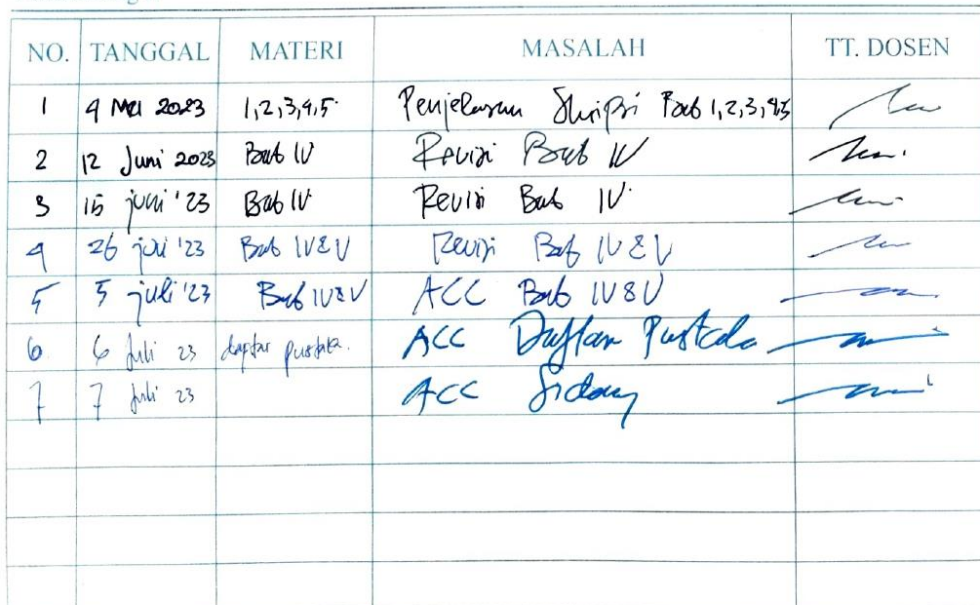 NO. TANGGAL MATERI MASALAH TT. DOSEN
1 4 Mei 2023 1,2,3,4,5 Penjelasan Skripsi Bab 1,2,3,4,5
2 12 Juni 2023 Bab IV Revisi Bab IV
3 15 juni '23 Bab IV Revisi Bab IV
4 26 '23 Bab IV & V Revisi Bab IV & V
5 5 juli '23 Bab IV & V ACC Bab IV & V
6 6 Juli 23 daptar pustaka. ACC Daftar Pustaka
7 7 Juli 23 ACC Sidang